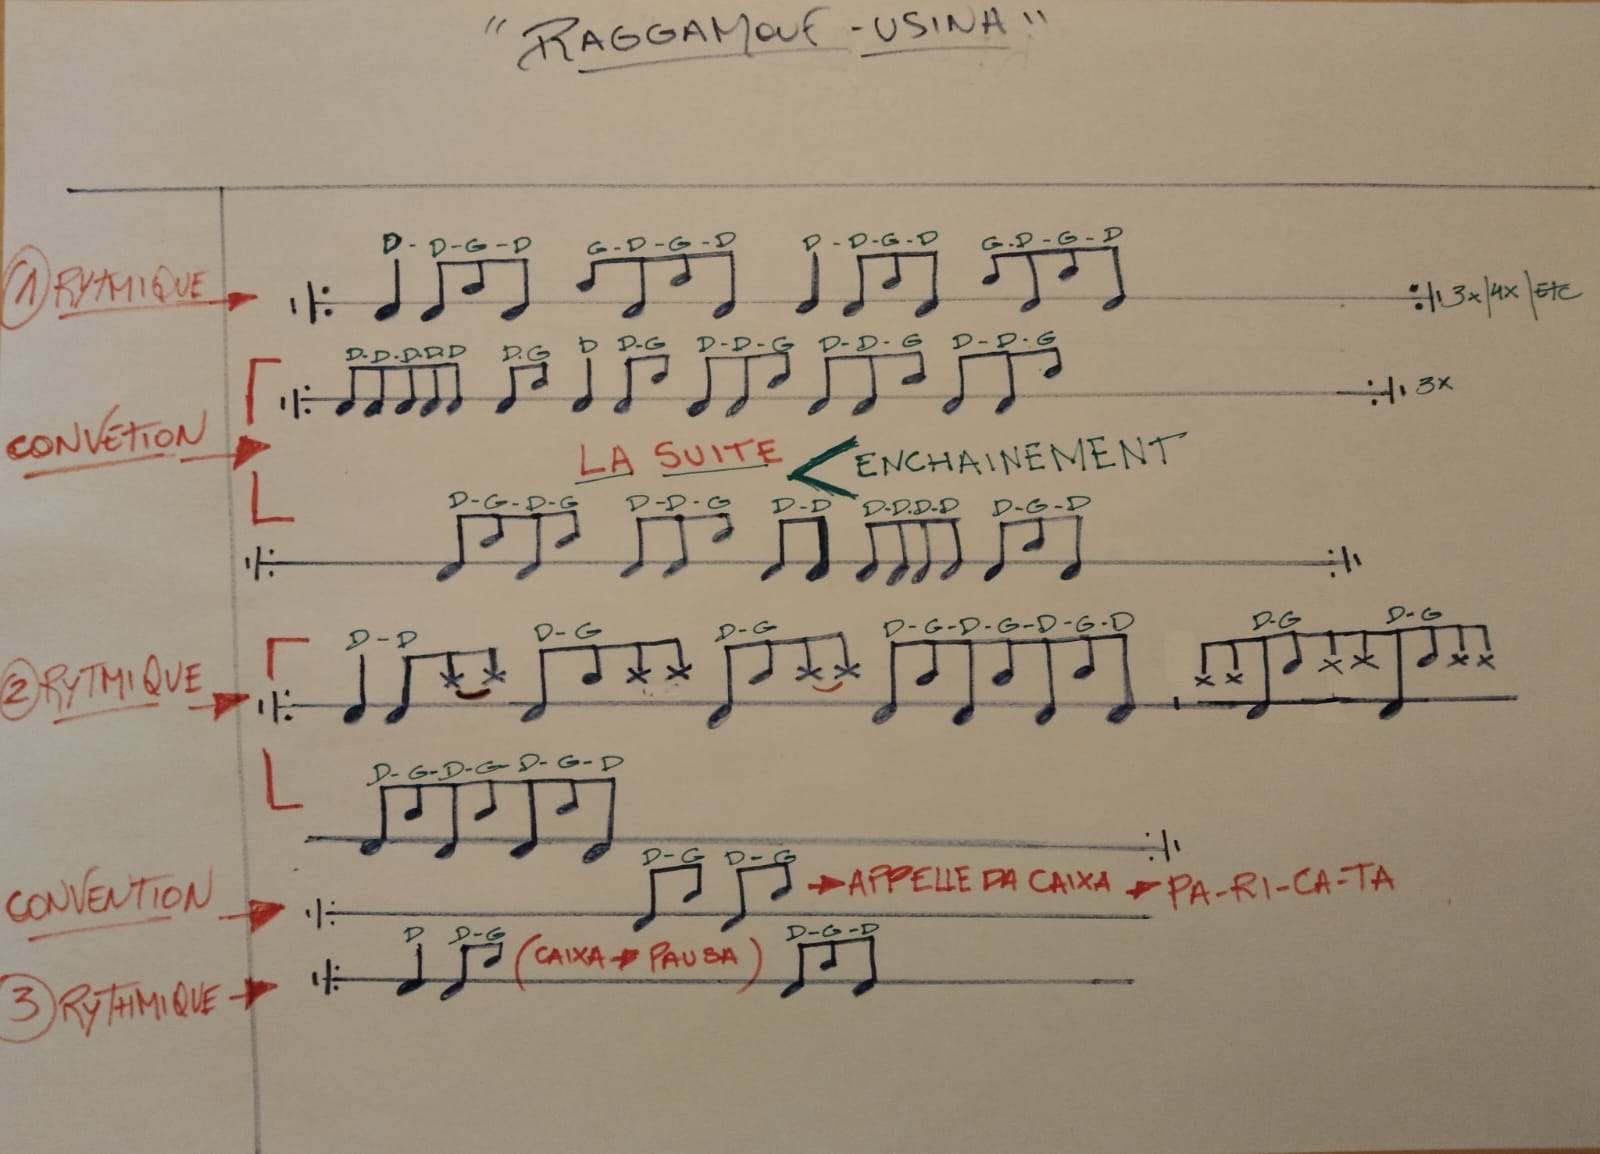 "RAGGAMOUF-USINA"
D- D-G-D G-D-G-D D-D-G-D G-D-G-D
① RYTMIQUE 3x/4x/ETC
D.D.D.D.D D.G D D-G D-D-G D-D-G D-D-G
3x
CONVÉTION
LA SUITE < ENCHAINEMENT
D-G-D-G D-D-G D-D D.D.D.D D-G-D
D-D D-G D-G D-G-D-G-D-G-D D-G D-G
② RYTMIQUE
D-G-D-G-D-G-D
D-G D-G
CONVENTION APPELLE DA CAIXA PA-RI-CA-TA
D D-G (CAIXA PAUSA) D-G-D
③ RYTHMIQUE